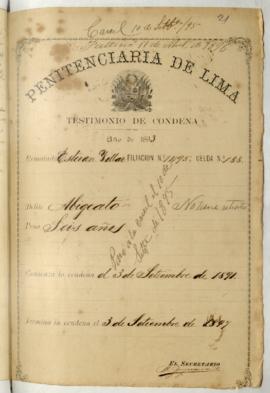 Carcel 10 de Setbre/95
21
Falleció 11 de Abl de
PENITENCIARIA DE LIMA
TESTIMONIO DE CONDENA
Año de 189
Rematado Esteván Villar FILIACION N.º 1095. CELDA N.º 188.
Delito Abigeato
No tiene retrato
Pena Seis años
Pasó a la carcel el 10 de Setbre de 1895
Comienza la condena el 3 de Setiembre de 1891.
Termina la condena el 3 de Setiembre de 1897
EL SECRETARIO